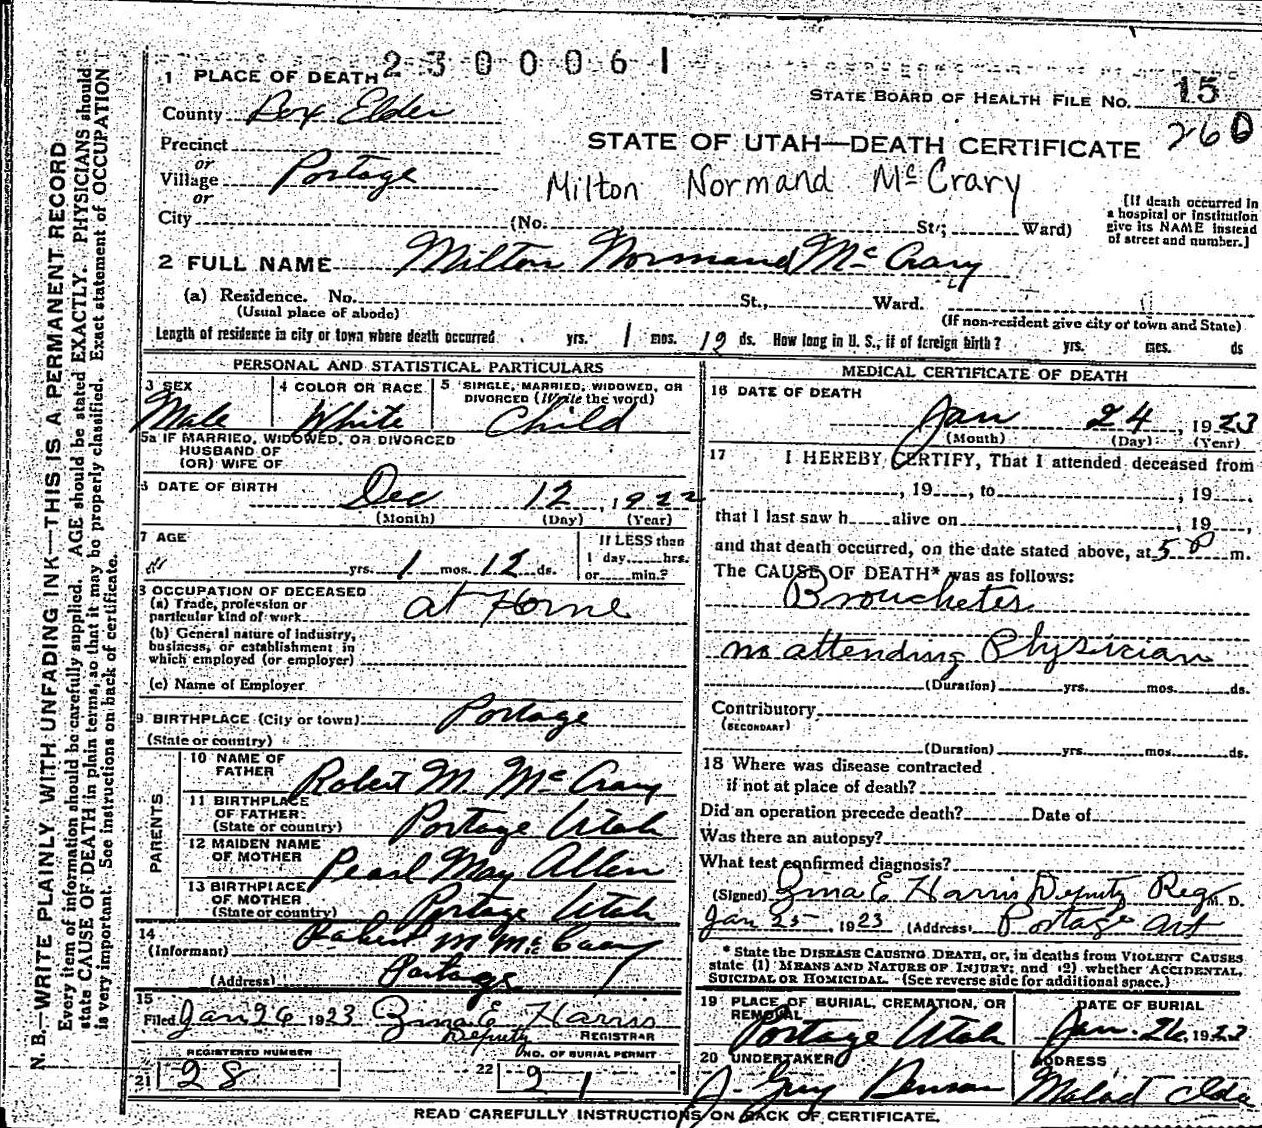 2300061
1 PLACE OF DEATH
STATE BOARD OF HEALTH FILE NO. 15
260
County Box Elder
STATE OF UTAH—DEATH CERTIFICATE
Precinct
or
Village Portage
or
Milton Normand McCrary
City (No. St.; Ward)
[If death occurred in
a hospital or institution
give its NAME instead
of street and number.]
2 FULL NAME Milton Normand McCrary
(a) Residence. No. St., Ward.
(Usual place of abode)
(If non-resident give city or town and State)
Length of residence in city or town where death occurred yrs. 1 mos. 12 ds. How long in U. S., if of foreign birth? yrs. mos. ds
PERSONAL AND STATISTICAL PARTICULARS
3 SEX
Male
4 COLOR OR RACE
White
5 SINGLE, MARRIED, WIDOWED, OR
DIVORCED (Write the word)
Child
5a IF MARRIED, WIDOWED, OR DIVORCED
HUSBAND OF
(OR) WIFE OF
6 DATE OF BIRTH Dec 12, 1922
(Month) (Day) (Year)
7 AGE
yrs. 1 mos. 12 ds.
If LESS than
1 day hrs.
or min.?
8 OCCUPATION OF DECEASED
(a) Trade, profession or
particular kind of work at Home
(b) General nature of industry,
business, or establishment in
which employed (or employer)
(c) Name of Employer
9 BIRTHPLACE (City or town) Portage
(State or country)
PARENTS
10 NAME OF
FATHER Robert M. McCrary
11 BIRTHPLACE
OF FATHER:
(State or country) Portage Utah
12 MAIDEN NAME
OF MOTHER Pearl May Allen
13 BIRTHPLACE
OF MOTHER
(State or country) Portage Utah
14
(Informant) Robert M McCrary
(Address) Portage
15
Filed Jan 26 1923 Zina E Harris
Deputy REGISTRAR
REGISTERED NUMBER
21 28
NO. OF BURIAL PERMIT
22 21
MEDICAL CERTIFICATE OF DEATH
16 DATE OF DEATH
Jan 24, 1923
(Month) (Day) (Year)
17 I HEREBY CERTIFY, That I attended deceased from
, 19 , to , 19 .
that I last saw h alive on , 19 ,
and that death occurred, on the date stated above, at 5 P m.
The CAUSE OF DEATH* was as follows:
Broucheter
no attending Physician
(Duration) yrs. mos. ds.
Contributory
(SECONDARY)
(Duration) yrs. mos. ds.
18 Where was disease contracted
if not at place of death?
Did an operation precede death? Date of
Was there an autopsy?
What test confirmed diagnosis?
(Signed) Zina E Harris Deputy Reg M. D.
Jan 25, 1923 (Address) Portage
* State the DISEASE CAUSING DEATH, or, in deaths from VIOLENT CAUSES
state (1) MEANS AND NATURE OF INJURY; and (2) whether ACCIDENTAL,
SUICIDAL OR HOMICIDAL. (See reverse side for additional space.)
19 PLACE OF BURIAL, CREMATION, OR
REMOVAL
Portage Utah
DATE OF BURIAL
Jan. 26, 1923
20 UNDERTAKER
J. Guy Benson
ADDRESS
Malad Ida
READ CAREFULLY INSTRUCTIONS ON BACK OF CERTIFICATE.
N. B.—WRITE PLAINLY WITH UNFADING INK—THIS IS A PERMANENT RECORD
Every item of information should be carefully supplied. AGE should be stated EXACTLY. PHYSICIANS should
state CAUSE OF DEATH in plain terms, so that it may be properly classified. Exact statement of OCCUPATION
is very important. See instructions on back of certificate.